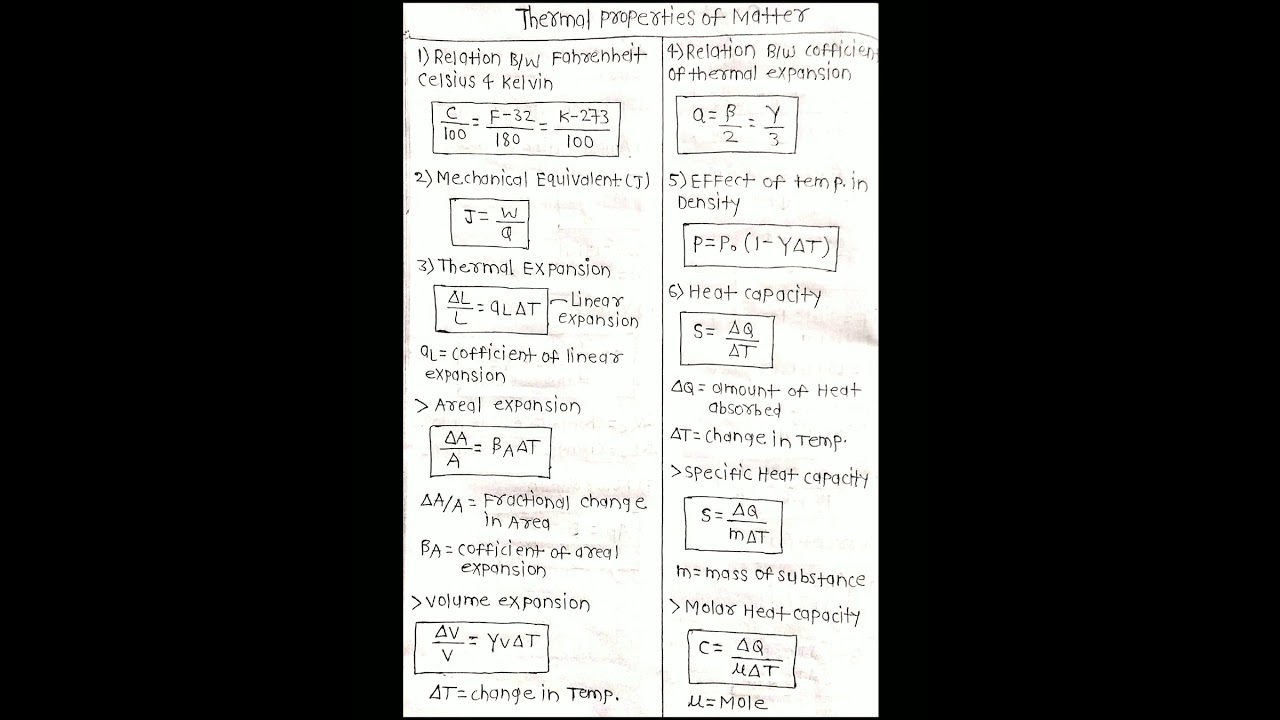 Thermal Properties of Matter
1) Relation B/W Fahrenheit
Celsius & Kelvin
C/100 = F-32/180 = K-273/100
2) Mechanical Equivalent (J)
J = W/Q
3) Thermal Expansion
ΔL/L = αL ΔT - Linear
expansion
αL = cofficient of linear
expansion
> Areal expansion
ΔA/A = βA ΔT
ΔA/A = Fractional change
in Area
βA = cofficient of areal
expansion
> volume expansion
ΔV/V = γV ΔT
ΔT = change in Temp.
4) Relation B/W cofficient
of thermal expansion
α = β/2 = γ/3
5) Effect of temp. in
Density
ρ = ρ₀ (1 - γΔT)
6) Heat capacity
S = ΔQ/ΔT
ΔQ = amount of Heat
absorbed
ΔT = change in Temp.
> specific Heat capacity
S = ΔQ/mΔT
m = mass of substance
> Molar Heat capacity
C = ΔQ/μΔT
μ = Mole